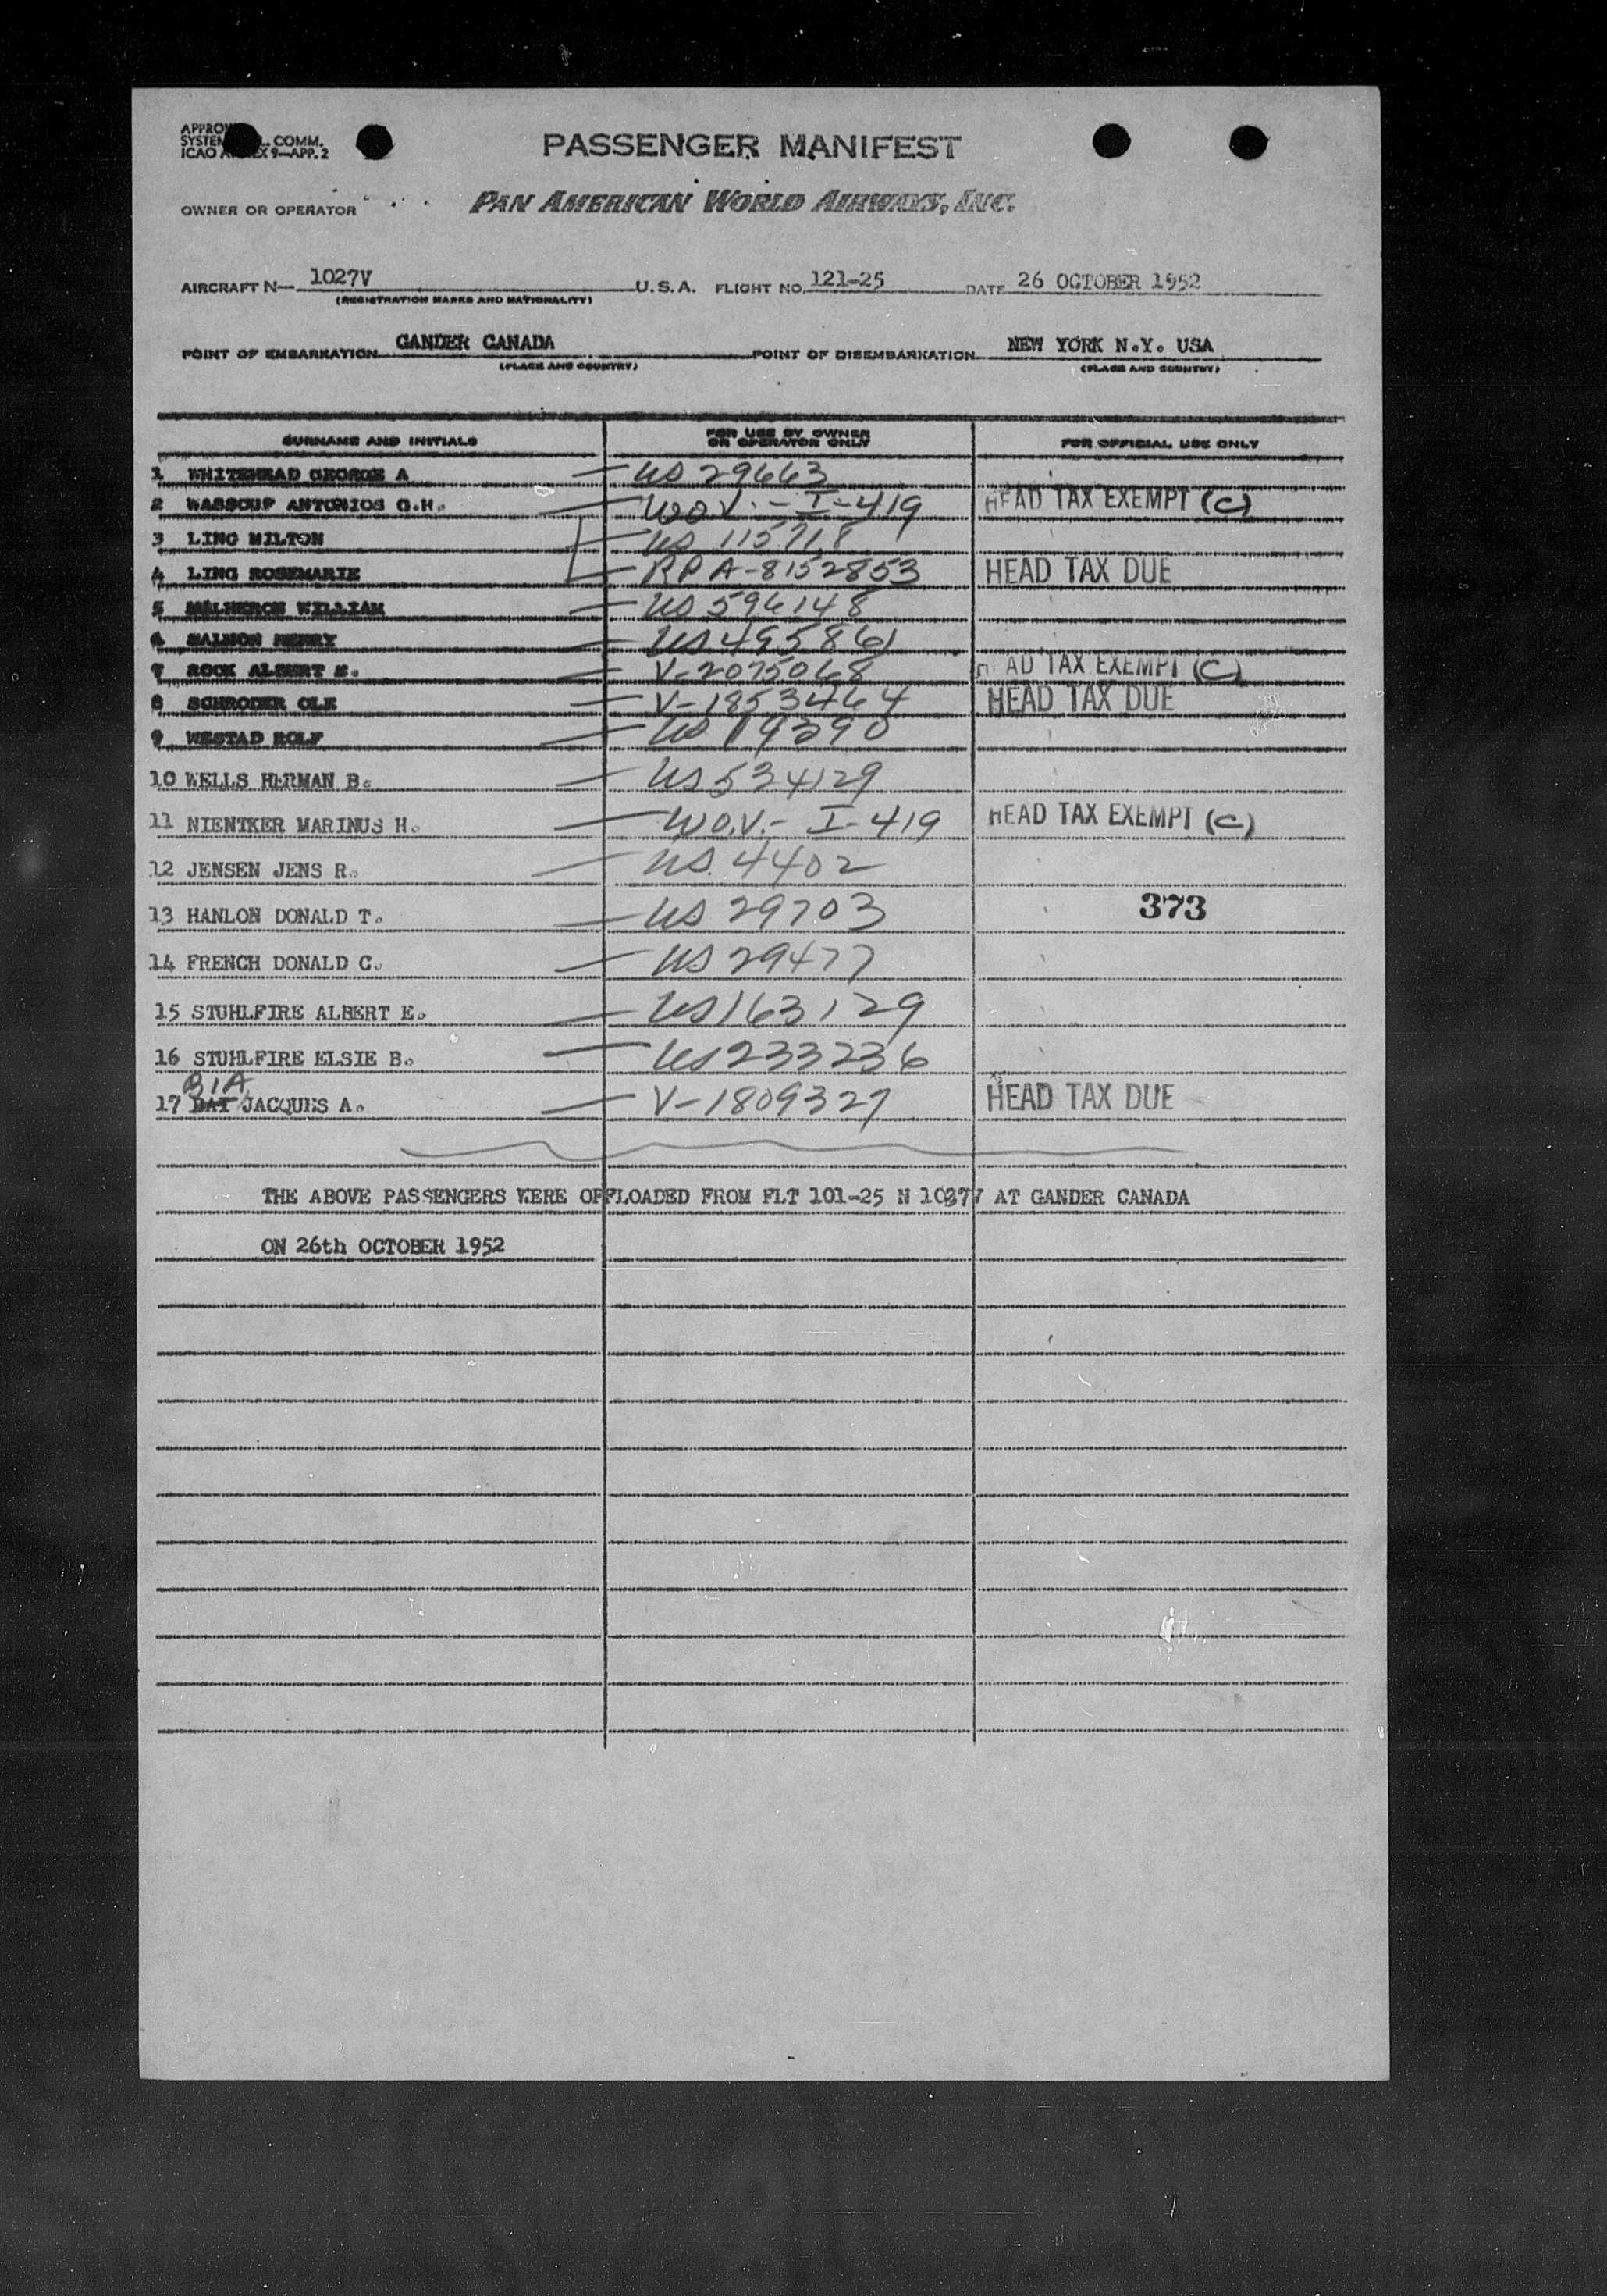 PASSENGER MANIFEST
COMM.
ICAO 9—APP. 2
OWNER OR OPERATOR PAN AMERICAN WORLD AIRWAYS, INC.
AIRCRAFT N— 1027V U.S.A. FLIGHT NO. 121-25 DATE 26 OCTOBER 1952
(REGISTRATION MARKS AND NATIONALITY)
POINT OF EMBARKATION GANDER CANADA POINT OF DISEMBARKATION NEW YORK N.Y. USA
(PLACE AND COUNTRY) (PLACE AND COUNTRY)
SURNAME AND INITIALS FOR USE BY OWNER OR OPERATOR ONLY FOR OFFICIAL USE ONLY
1 WHITEHEAD GEORGE A — US 29663
2 WASSOUF ANTONIOS G.H. — W.O.V. - I-419 HEAD TAX EXEMPT (C)
3 LING MILTON — US 115718
4 LING ROSEMARIE — RP A-8152853 HEAD TAX DUE
5 WILLIAM — US 596148
6 SALMON HENRY — US 495861
7 ROCK ALBERT E. — V-2075068 HEAD TAX EXEMPT (C)
8 SCHRODER OLE — V-1853464 HEAD TAX DUE
9 WESTAD ROLF — US 19290
10 WELLS HERMAN B. — US 534129
11 NIENTKER MARINUS H. — W.O.V.- I-419 HEAD TAX EXEMPT (C)
12 JENSEN JENS R. — US 4402
13 HANLON DONALD T. — US 29703 373
14 FRENCH DONALD C. — US 29477
15 STUHLFIRE ALBERT E. — US 163129
16 STUHLFIRE ELSIE B. — US 233236
BIA
17 BAT JACQUES A. — V-1809327 HEAD TAX DUE
THE ABOVE PASSENGERS WERE OFFLOADED FROM FLT 101-25 N 1027V AT GANDER CANADA
ON 26th OCTOBER 1952